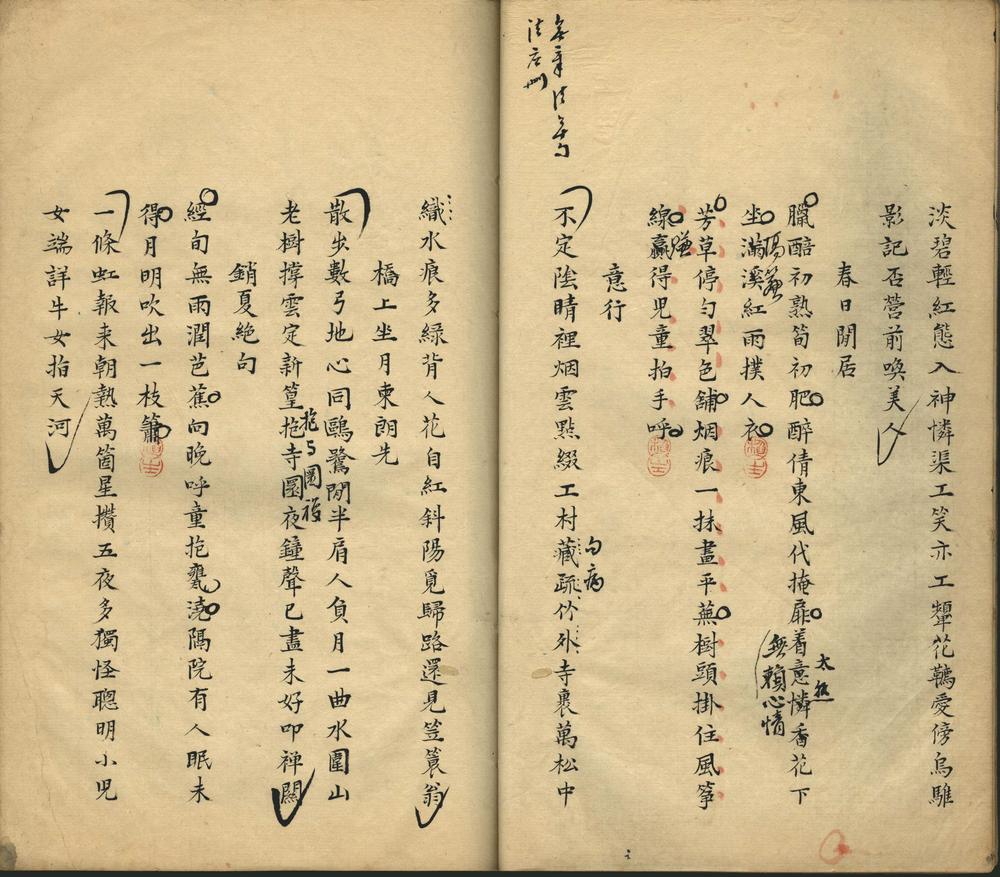 淡碧輕紅態入神憐渠工笑亦工顰花韉愛傍烏騅
影記否營前喚美人
春日閒居
臘醅初熟筍初肥醉倩東風代掩扉着意憐香花下
太熟
無賴心情
坐滿溪紅雨撲人衣
芳草停勻翠色舖烟痕一抹畫平蕪樹頭掛住風箏
線贏得兒童拍手呼
意行
不定陰晴裡烟雲點綴工村藏疏竹外寺裹萬松中
句病
織水痕多綠背人花自紅斜陽覓歸路還見笠簑翁
橋上坐月柬朗先
散步數弓地心同鷗鷺閒半肩人負月一曲水圍山
老樹撐雲定新篁抱寺圜夜鐘聲已盡未好叩禪關
抱与圜複
銷夏絕句
經旬無雨潤芭蕉向晚呼童抱甕澆隔院有人眠未
得月明吹出一枝簫
一條虹報来朝熱萬箇星攢五夜多獨怪聰明小児
女端詳牛女指天河